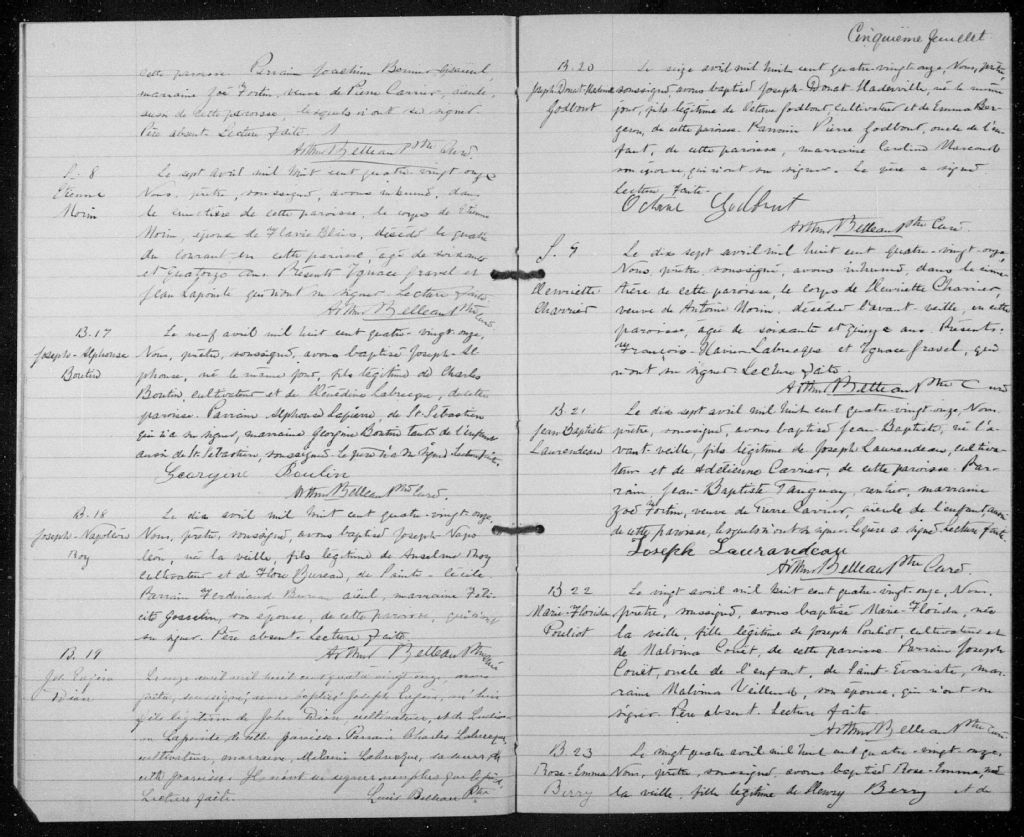 cette paroisse. Parrain Joachim
marraine Zoé Fortin, veuve de Pierre Carrier, aïeule,
aussi de cette paroisse, lesquels n'ont su signer.
Père absent. Lecture faite.
Arthur Belleau Ptre Curé.
S. 8
Etienne
Morin
Le sept avril mil huit cent quatre-vingt onze
Nous, prêtre, soussigné, avons inhumé, dans
le cimetière de cette paroisse, le corps de Etienne
Morin, époux de Flavie Blais, décédé le quatre
du courant en cette paroisse, agé de soixante
et quatorze ans. Présents Ignace Gravel et
Jean Lapointe qui n'ont su signer. Lecture faite.
Arthur Belleau Ptre Curé.
B. 17
Joseph-Alphonse
Boutin
Le neuf avril mil huit cent quatre-vingt onze,
Nous, prêtre, soussigné, avons baptisé Joseph-Al-
phonse, né le même jour, fils légitime de Charles
Boutin, cultivateur et de Labrecque, de cette
paroisse. Parrain Alphonse Lapierre, de St-Sébastien
qui n'a su signer, marraine Georgine Boutin tante de l'enfant
aussi de St-Sébastien, soussigné. Le père n'a su signer. Lecture faite.
Georgine Boutin
Arthur Belleau Ptre Curé.
B. 18
Joseph-Napoléon
Roy
Le dix avril mil huit cent quatre-vingt-onze
Nous, prêtre, soussigné, avons baptisé Joseph Napo
léon, né la veille, fils légitime de Anselme Roy
cultivateur et de Flore Bureau, de Sainte-Cécile.
Parrain Ferdinand Bureau aïeul, marraine Féli-
cité Gosselin, son épouse, de cette paroisse, qui n'ont
su signer. Père absent. Lecture faite.
Arthur Belleau Ptre Curé
B. 19
Jos. Eugène
Dion
Le onze avril mil huit cent quatre vingt onze, nous
prêtre, soussigné, avons baptisé Joseph Eugène, né hier
fils légitime de John Dion, cultivateur, et de
de cette paroisse. Parrain Charles Labrecque,
cultivateur, marraine, Labrecque, sa soeur de
cette paroisse. Ils n'ont su signer non plus que le père.
Lecture faite. Louis Belleau Ptre
Cinquième feuillet
B. 20
Joseph Donat
Godbout
Le seize avril mil huit cent quatre-vingt onze, Nous, prêtre
soussigné, avons baptisé Joseph-Donat né le même
jour, fils légitime de Octave Godbout cultivateur et de Emma Ber-
geron, de cette paroisse. Parrain Pierre Godbout, oncle de l'en-
fant, de cette paroisse, marraine Caroline Marcoux
son épouse, qui n'ont su signer. Le père a signé
lecture faite.
Octave Godbout
Arthur Belleau Ptre Curé.
S. 9
Henriette
Charrier
Le dix sept avril mil huit cent quatre-vingt-onze,
Nous, prêtre, soussigné, avons inhumé, dans le cime-
tière de cette paroisse, le corps de Henriette Charrier,
veuve de Antoine Morin, décédée l'avant-veille, en cette
paroisse, agée de soixante et quinze ans. Présents.
François-Xavier Labrecque et Ignace Gravel, qui
n'ont su signer. Lecture faite.
Arthur Belleau Ptre Curé
B. 21
Jean Baptiste
Laurendeau
Le dix sept avril mil huit cent quatre-vingt-onze, Nous
prêtre, soussigné, avons baptisé Jean-Baptiste, né l'a-
vant-veille, fils légitime de Joseph Laurendeau, cultiva-
teur et de Carrier, de cette paroisse. Par-
rain Jean-Baptiste Tanguay, rentier, marraine
Zoé Fortin, veuve de Pierre Carrier, aïeule de l'enfant, aussi
de cette paroisse, lesquels n'ont su signer. Le père a signé. Lecture faite.
Joseph Laurandeau
Arthur Belleau Ptre Curé.
B. 22
Marie-Florida
Pouliot
Le vingt avril mil huit cent quatre-vingt-onze, Nous,
prêtre, soussigné, avons baptisé Marie-Florida, née
la veille, fille légitime de Joseph Pouliot, cultivateur et
de Malvina Couët, de cette paroisse. Parrain Joseph
Couët, oncle de l'enfant, de Saint-Evariste, mar-
raine Malvina Veilleux, son épouse, qui n'ont su
signer. Père absent. Lecture faite.
Arthur Belleau Ptre Curé
B. 23
Rose-Emma
Berry
Le vingt quatre avril mil huit cent quatre-vingt-onze.
Nous, prêtre, soussigné, avons baptisé Rose-Emma, née
la veille, fille légitime de Henry Berry et de